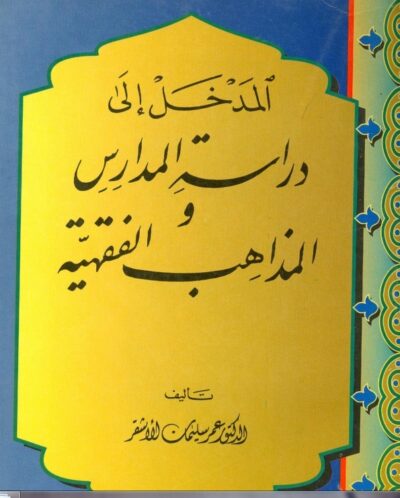 المَدْخَلْ إلىَ
دراسةِ المدارسِ
و
المذاهب الفقهيّة
تأليف
الدكتور عمر سليمان الأشقر